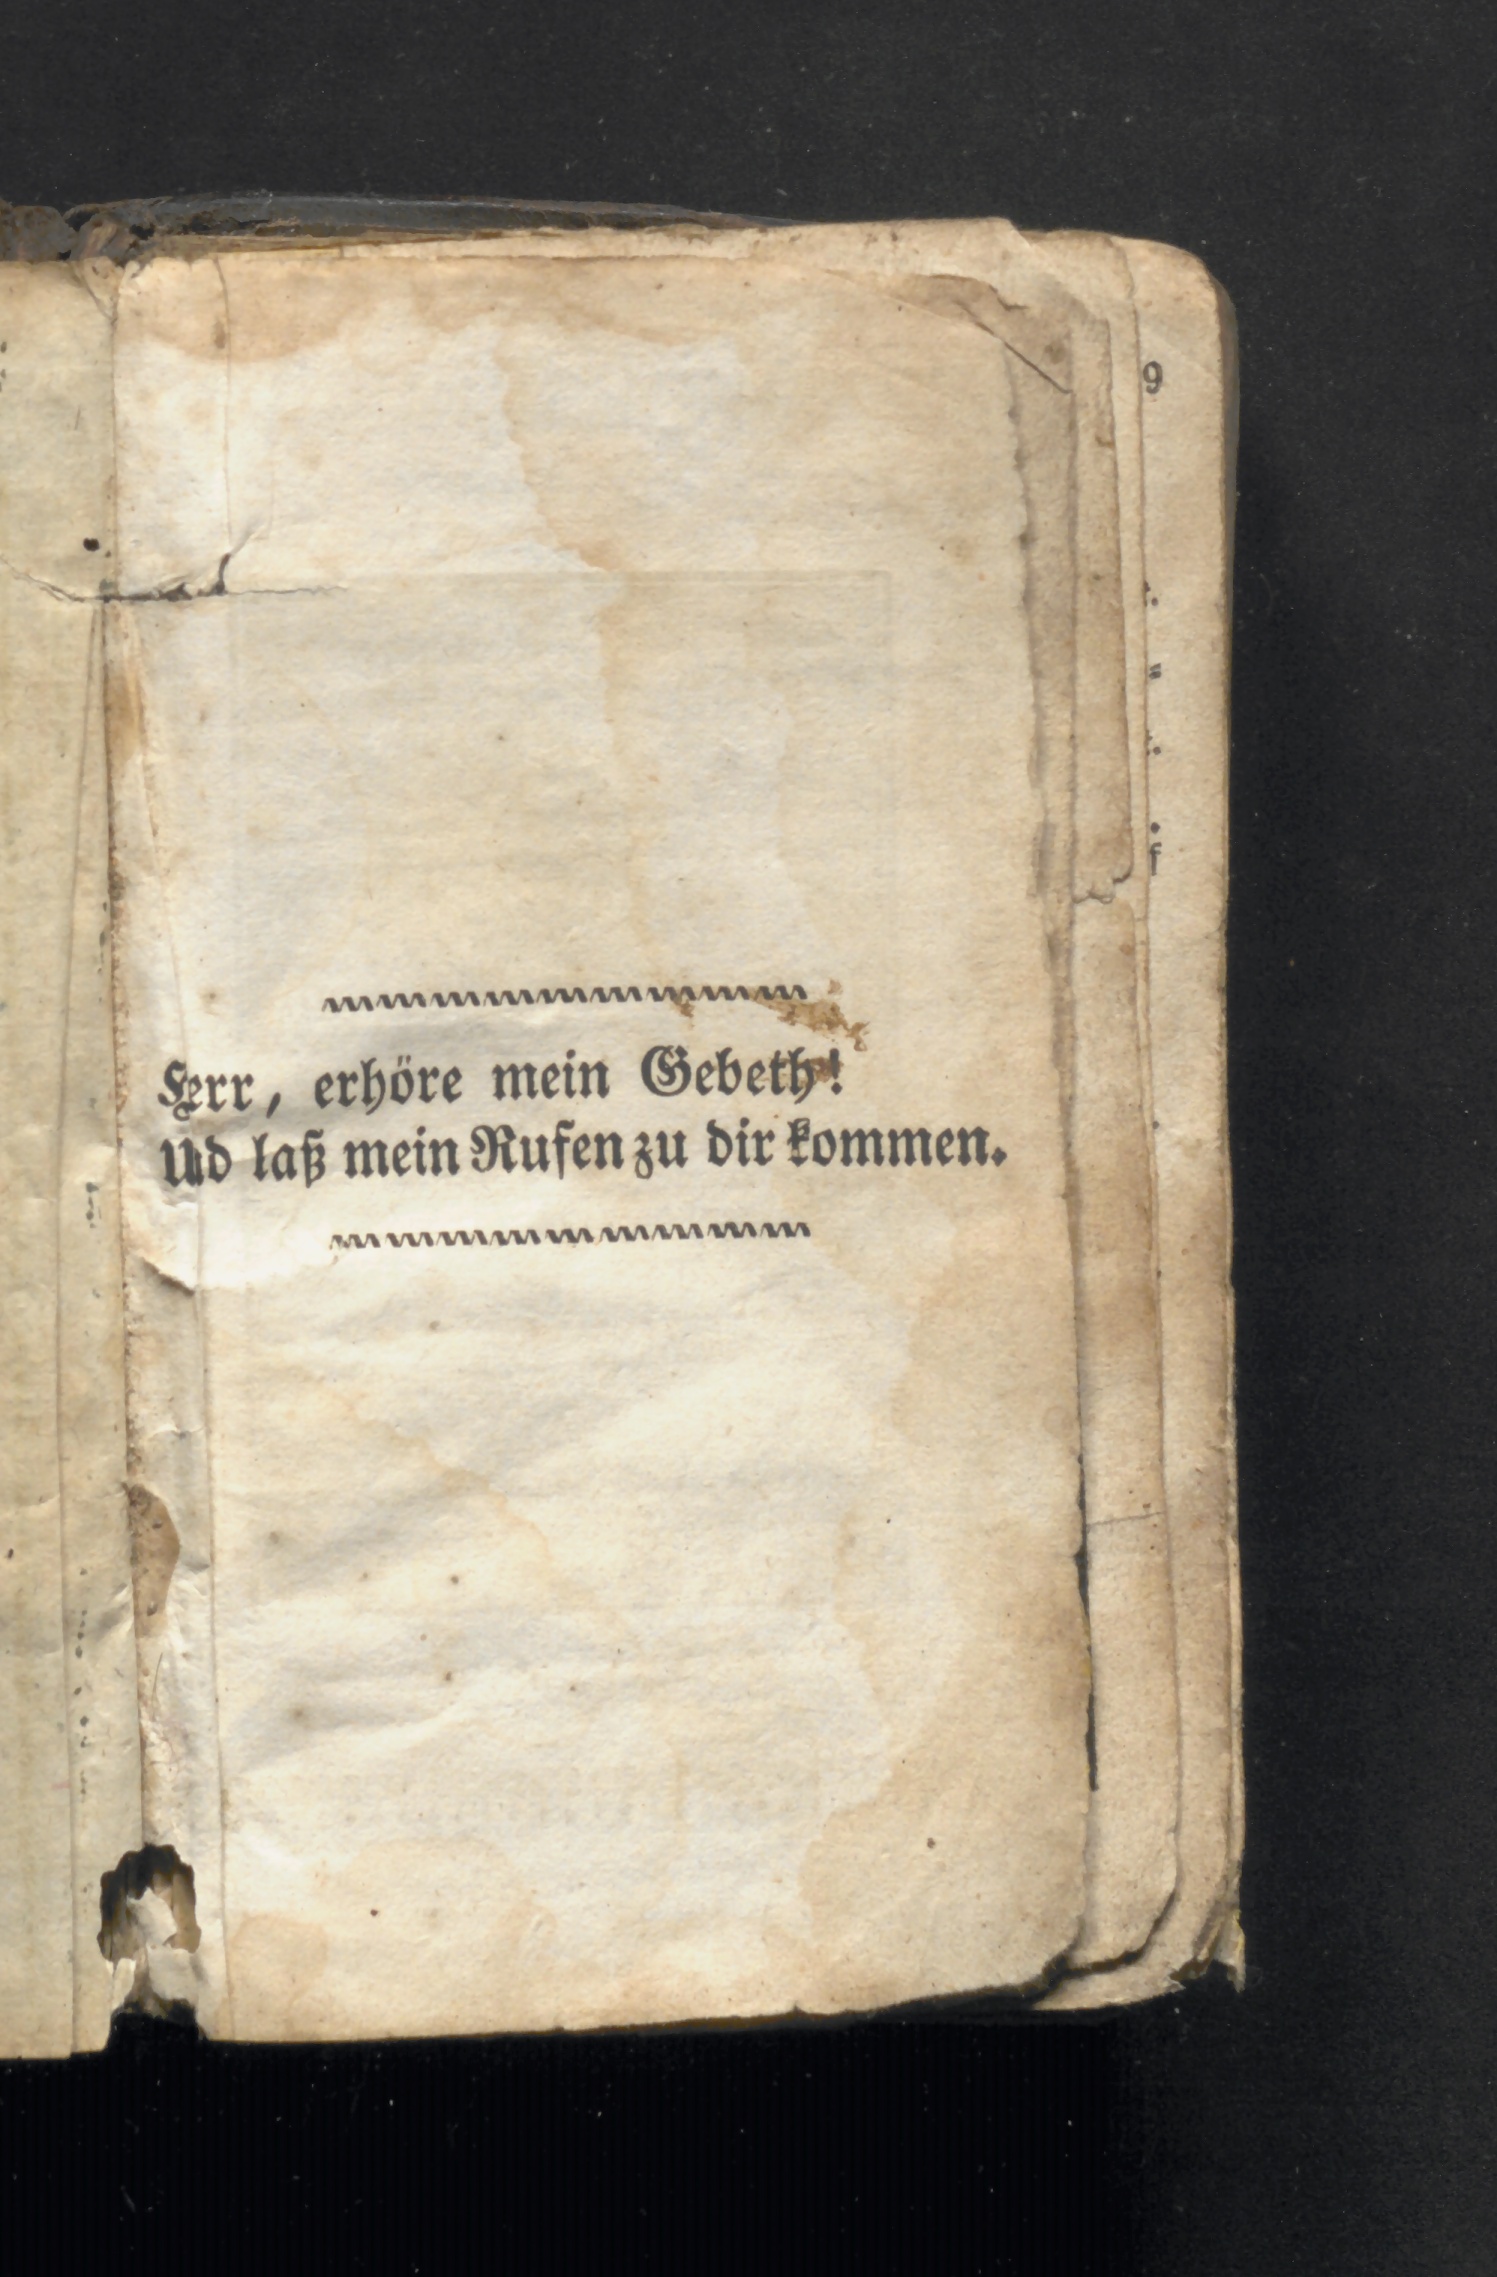 Herr, erhöre mein Gebeth!
Ud laß mein Rufen zu dir kommen.
9
f